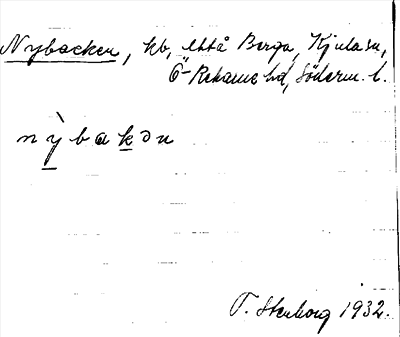 Nybacken, kb, uttå Berga, Kjula sn,
Ö-Rekarne hd, Söderm. l.
nỳbakən
T. Stenborg 1932.